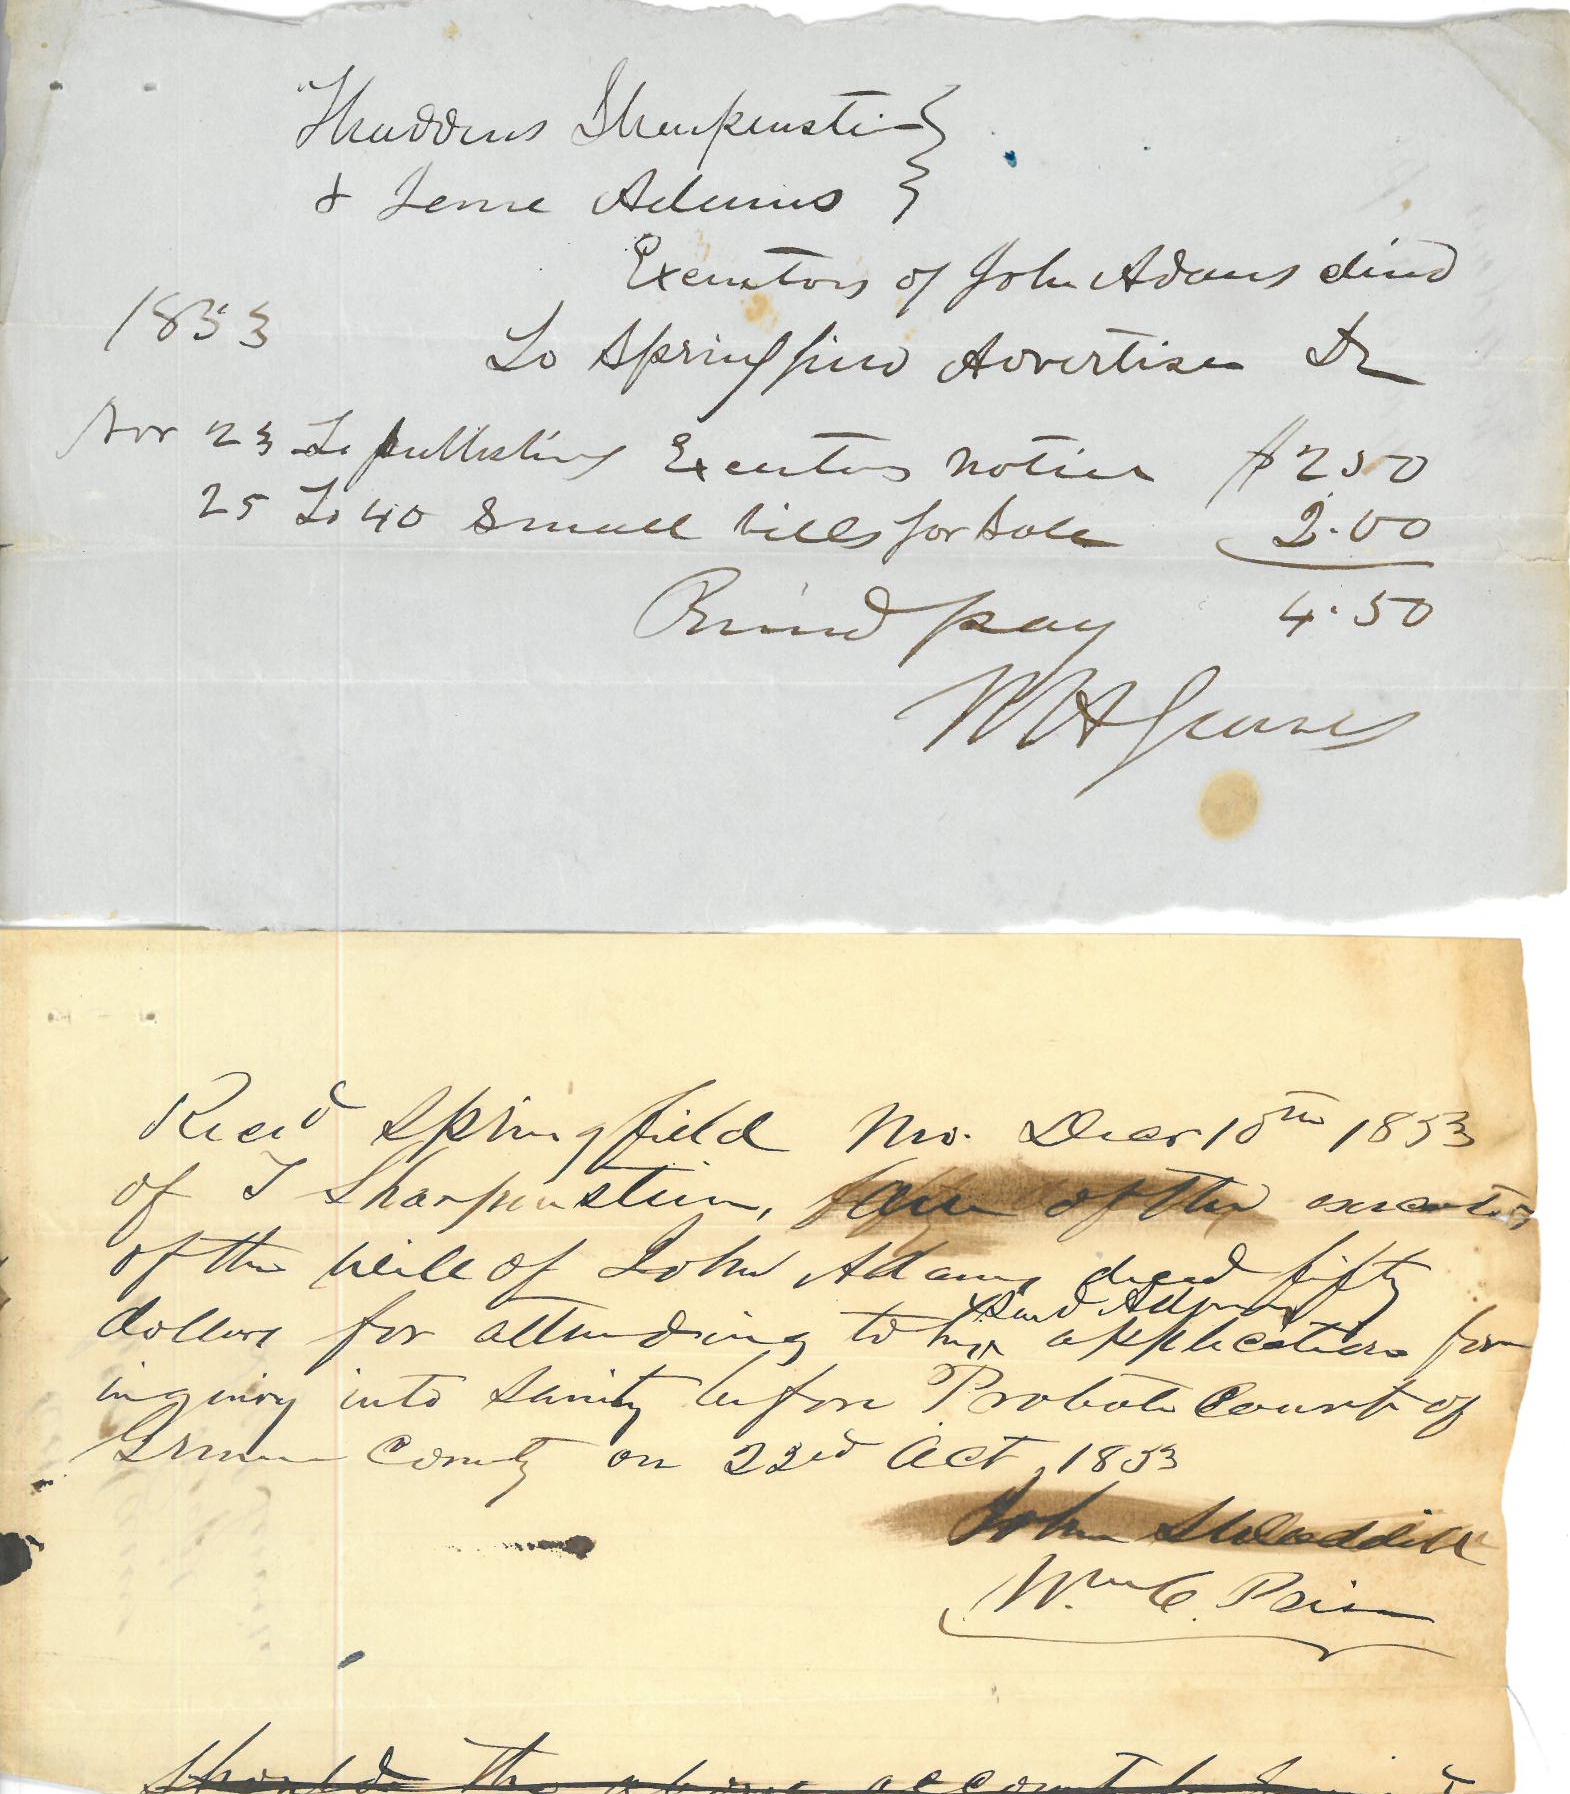 Thaddeus Sharpenstein
& Jerne Adams
Executors of John Adams decd
1853
To Springfield Advertiser Dr
Nov 23 To publishing Executors notice $2.50
25 To 40 Small bills for Sale 2.00
Recived pay 4.50
W H Graves
Recd Springfield Mo. Decr 10th 1853
of T Sharpenstein, one of the executors
of the will of John Adams decd fifty
said Adams
dollars for attending to application for
inquiry into sanity before Probate Court of
Greene County on 22nd Oct, 1853
John S Waddill
Wm C. Price
Should the above account